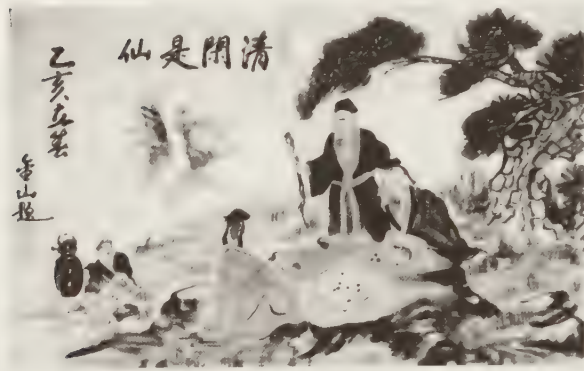 清閑是仙
乙亥立春
金山題